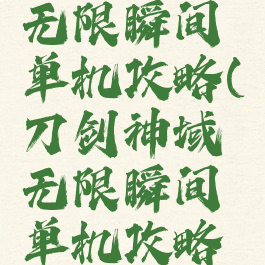 无限瞬间
单机攻略(
刀剑神域
无限瞬间
单机攻略